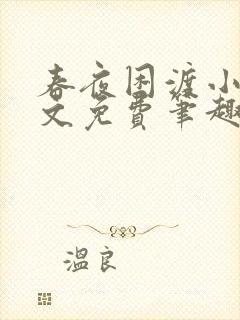 春夜困渡小
文免费笔趣
温良